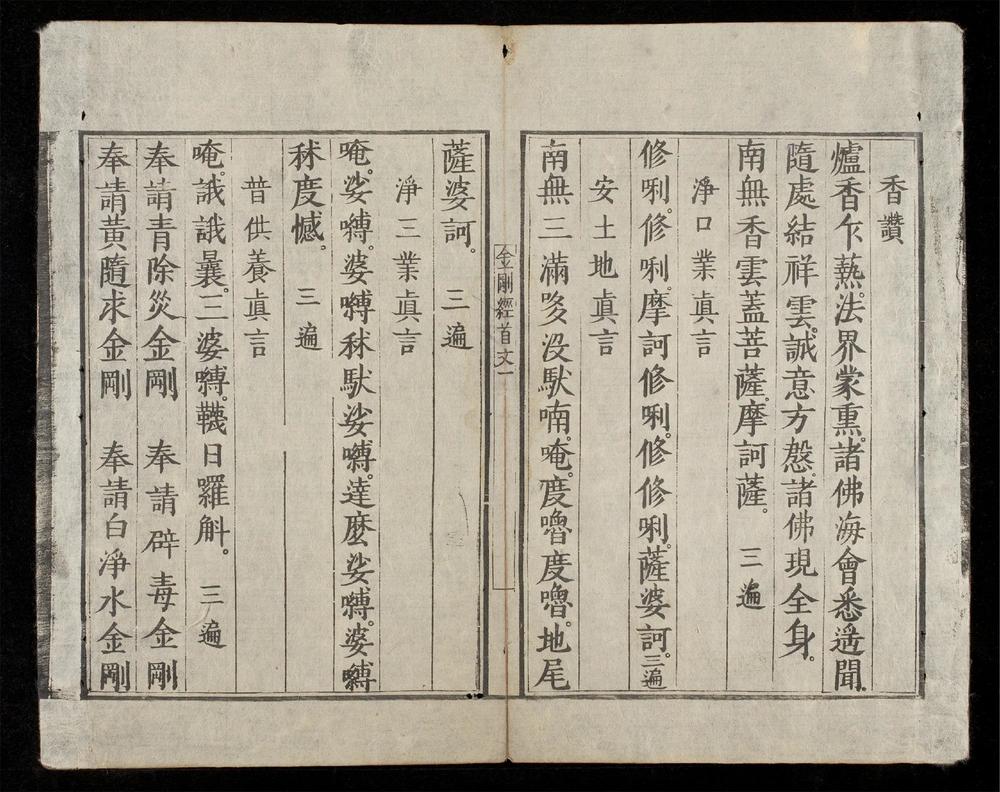 香讚
爐香乍爇。法界蒙熏。諸佛海會悉遥聞。
隨處結祥雲。誠意方慇。諸佛現全身。
南無香雲蓋菩薩。摩訶薩。 三遍
淨口業眞言
修唎。修唎。摩訶修唎。修修唎。薩婆訶。三遍
安土地眞言
南無三滿哆沒馱喃。唵。度嚕度嚕。地尾
金剛經首文一
薩婆訶。 三遍
淨三業眞言
唵。娑嚩。婆嚩秫馱娑嚩。達麽娑嚩。婆嚩
秫度憾。 三遍
普供養眞言
唵。誐誐曩。三婆嚩。韈日羅斛。 三遍
奉請青除災金剛 奉請辟毒金剛
奉請黃隨求金剛 奉請白淨水金剛